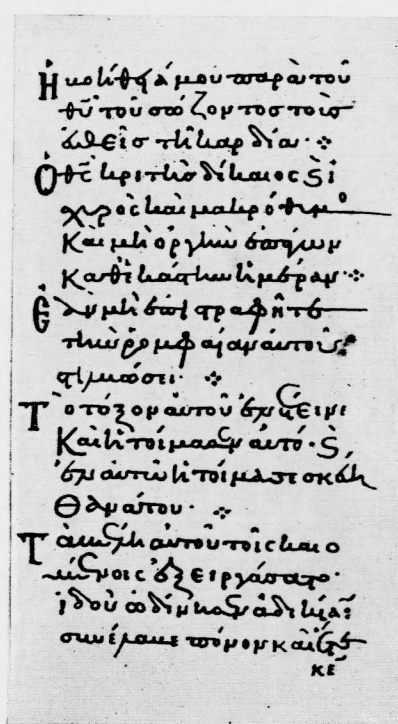 Ἡ βοήθειά μου παρὰ τοῦ
θῦ τοῦ σώζοντος τοὺς
εὐθεῖς τῆ καρδία·
Ὁ θς̄ κριτὴς δίκαιος ϗ ἰ
σχυρὸς καὶ μακρόθυμο
καὶ μὴ ὀργὴν ἐπάγων
καθεκάστην ἡμέραν·
Ἐὰν μὴ ἐπιστραφῆτε
τὴν ῥομφαίαν αὐτοῦ
στιλβώσει·
Τὸ τόξον αὐτοῦ ἐνέτεινε
καὶ ἡτοίμασεν αὐτό· ϗ
ἐν αὐτῶ ἡτοίμασε σκεύη
θανάτου·
Τὰ βέλη αὐτοῦ τοῖς καιο
μένοις ἐξειργάσατο·
ἰδοὺ ὠδίνησεν ἀδικίαν
συνέλαβε πόνον καὶ ἔτε
κεν